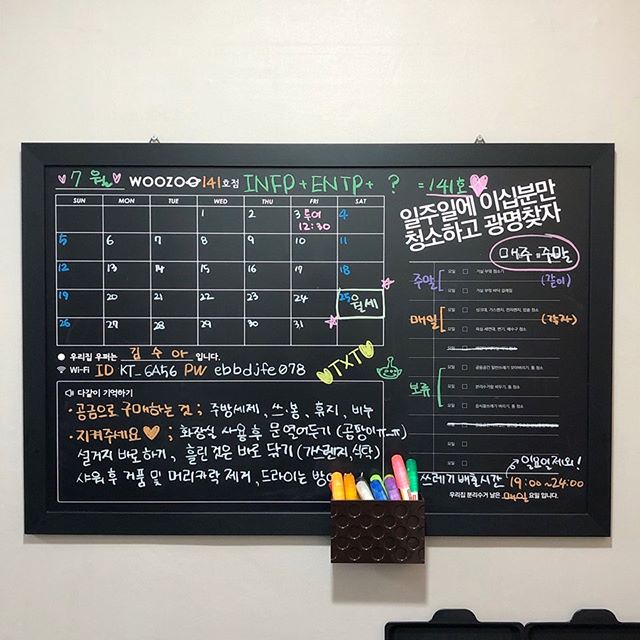 7월 WOOZOO 141호점 INFP + ENTP + ? = 141호
SUN MON TUE WED THU FRI SAT
1 2 3 투어 12:30 4
5 6 7 8 9 10 11
12 13 14 15 16 17 18
19 20 21 22 23 24 25 월세
26 27 28 29 30 31
우리집 우퍼는 김수아 입니다.
Wi-Fi ID KT_GA56 PW ebbdjfe078
TXT
다같이 기억하기
· 공금으로 구매하는 것 ; 주방세제, 쓰.봉, 휴지, 비누
· 지켜주세요 ; 화장실 사용 후 문 열어두기 (곰팡이ㅠ_ㅠ)
설거지 바로 하기, 흘린 것은 바로 닦기 (가스렌지, 식탁)
샤워 후 거품 및 머리카락 제거, 드라이는
일주일에 이십분만
청소하고 광명찾자
매주 주말
주말 요일 거실 부엌 청소기 (같이)
요일 거실 부엌 바닥 걸레질
매일 요일 싱크대, 가스렌지, 전자렌지, 밥솥 청소
요일 욕실 세면대, 변기, 배수구 청소
보류 요일
요일
요일
요일
요일
일요일 제외!
쓰레기 배출시간 19:00 ~ 24:00
우리집 분리수거 날은 매일 요일 입니다.